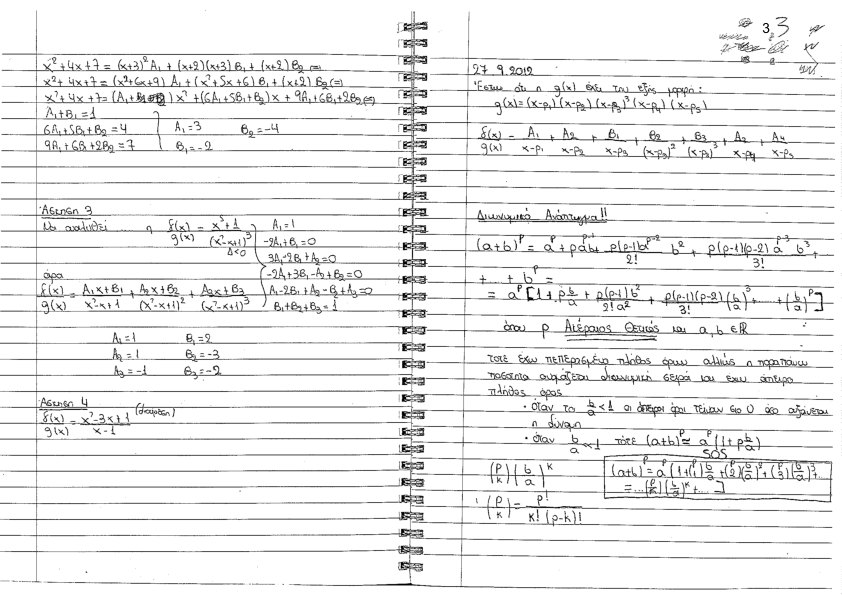 x²+4x+7 = (x+3)²A₁ + (x+2)(x+3)B₁ + (x+2)B₂ ⇔
x²+4x+7 = (x²+6x+9)A₁ + (x²+5x+6)B₁ + (x+2)B₂ ⇔
x²+4x+7 = (A₁+B₁)x² + (6A₁+5B₁+B₂)x + 9A₁+6B₁+2B₂ ⇔
A₁+B₁=1
6A₁+5B₁+B₂=4 A₁=3 B₂=-4
9A₁+6B₁+2B₂=7 B₁=-2
Άσκηση 3
Να αναλυθεί ... η f(x)/g(x) = x⁵+1/(x²-x+1)³ A₁=1
Δ<0 -2A₁+B₁=0
3A₁-2B₁+A₂=0
άρα -2A₁+3B₁-A₂+B₂=0
f(x)/g(x) = A₁x+B₁/x²-x+1 + A₂x+B₂/(x²-x+1)² + A₃x+B₃/(x²-x+1)³ A₁-2B₁+A₂-B₂+A₃=0
B₁+B₂+B₃=1
A₁=1 B₁=2
A₂=1 B₂=-3
A₃=-1 B₃=-2
Άσκηση 4
f(x)/g(x) = x²-3x+1/x-1 (διαίρεση)
3 3
27 9.2012
Έστω ότι η g(x) έχει την εξής μορφή:
g(x)=(x-p₁)(x-p₂)(x-p₃)³(x-p₄)(x-p₅)
f(x)/g(x) = A₁/x-p₁ + A₂/x-p₂ + B₁/x-p₃ + B₂/(x-p₃)² + B₃/(x-p₃)³ + A₃/x-p₄ + A₄/x-p₅
Διωνυμικό Ανάπτυγμα!!
(a+b)^p = a^p + p a^(p-1) b + p(p-1)a^(p-2)/2! b² + p(p-1)(p-2) a^(p-3) b³/3! +
+ ... + b^p =
= a^p [1+p b/a + p(p-1)b²/2! a² + p(p-1)(p-2)/3! (b/a)³ + ... + (b/a)^p]
όπου p Ακέραιος Θετικός και a, b ∈ ℝ
τότε έχω πεπερασμένο πλήθος όρων αλλιώς η παραπάνω
ποσότητα ονομάζεται διωνυμική σειρά και έχω άπειρο
πλήθος όρους
• όταν το b/a < 1 οι άπειροι όροι τείνουν στο 0 όσο αυξάνεται
η δύναμη
• όταν b/a << 1 τότε (a+b)^p ≈ a^p (1+p b/a)
SOS
(p k)(b/a)^k
(a+b)^p = a^p (1+(p 1) b/a + (p 2)(b/a)² + (p 3)(b/a)³ + ..
= ...(p k)(b/a)^k + ... ]
(p k) = p!/k!(p-k)!